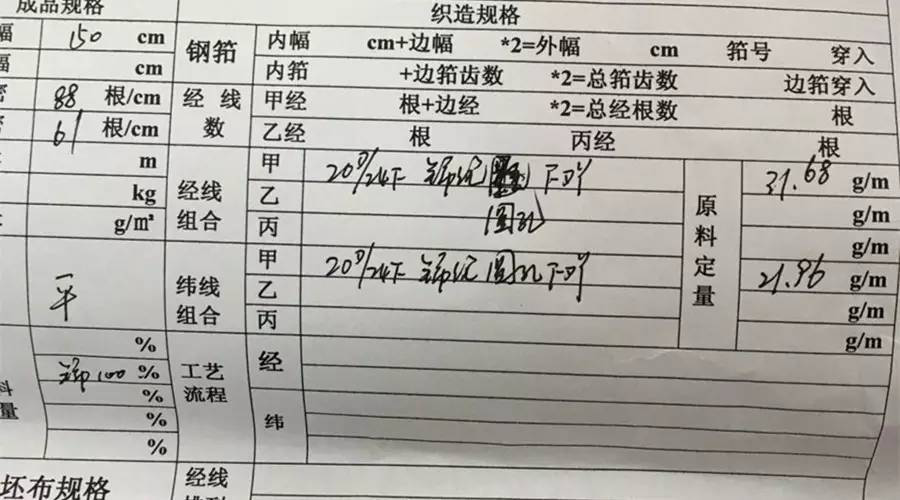 成品规格 织造规格
幅 150 cm 钢筘 内幅 cm+边幅 *2=外幅 cm 筘号 穿入
幅 cm 内筘 +边筘齿数 *2=总筘齿数 边筘穿入
密 88 根/cm 经线数 甲经 根+边经 *2=总经根数 根
61 根/cm 乙经 根 丙经 根
m 经线组合 甲 20D/24F 锦纶 FDY 原料定量 31.68 g/m
kg 乙 圆孔 g/m
g/m² 丙 g/m
平 纬线组合 甲 20D/24F 锦纶圆孔FDY 21.96 g/m
乙 g/m
丙 g/m
% 工艺流程 经
锦100 %
料 %
量 % 纬
%
坯布规格 经线